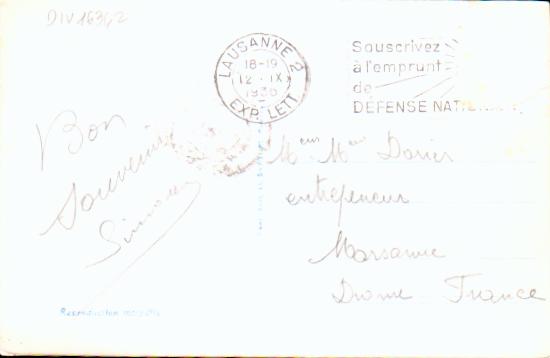 DIV 16342
LAUSANNE 2
18-19
12. IX
1936
EXP. LETT.
Souscrivez
à l'emprunt
de
DÉFENSE NATIONALE
Bon
Souvenir
Simone
Mr Mme Dorier
entrepreneur
Marsanne
Drome France
Reproduction interdite